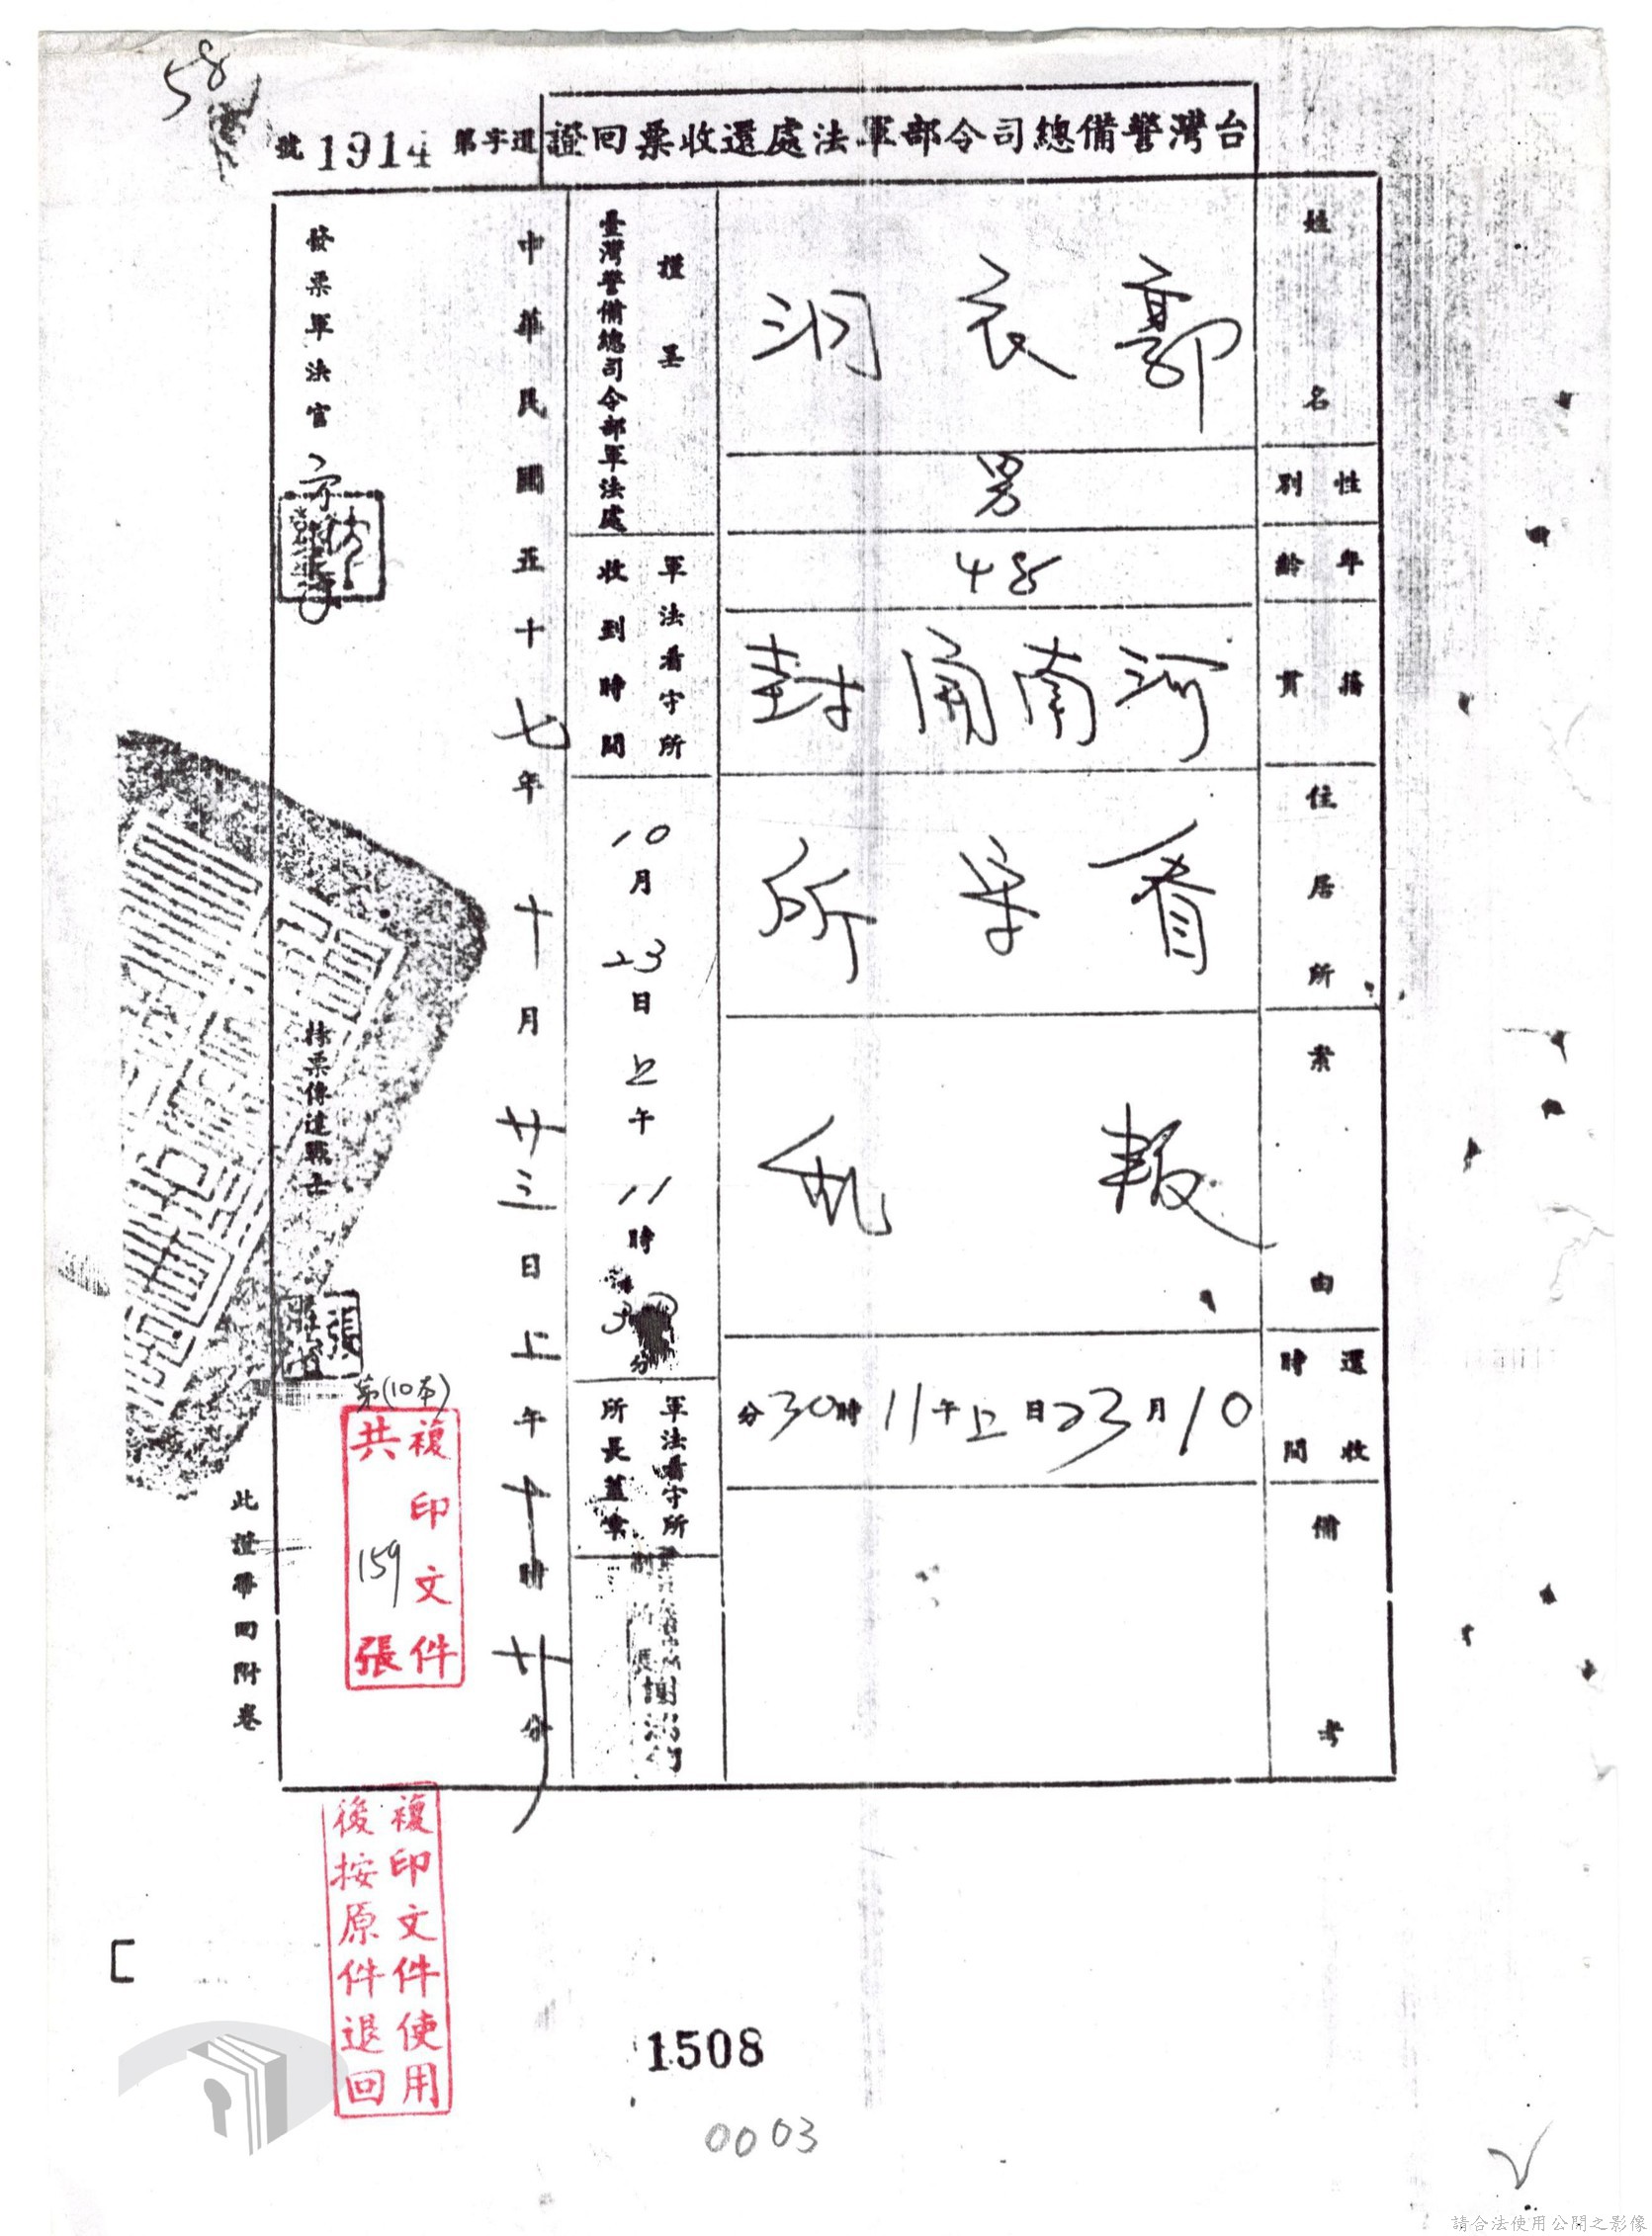 58
台灣警備總司令部軍法處還收票回證
還字第1914號
姓名
郭衣洞
性別
男
年齡
48
籍貫
河南開封
住居所
看守所
案由
叛乱
還收時間
10月23日上午11時30分
備考
謹呈
臺灣警備總司令部軍法處
軍法看守所
收到時間
10月23日上午11時30分
軍法看守所
所長蓋章
中華民國五十七年十月廿三日上午十時廿分
發票軍法官
持票傳達戰士
張
此證帶回附卷
第(10本)
複印文件
共159張
複印文件使用
後按原件退回
1508
0003
請合法使用公開之影像